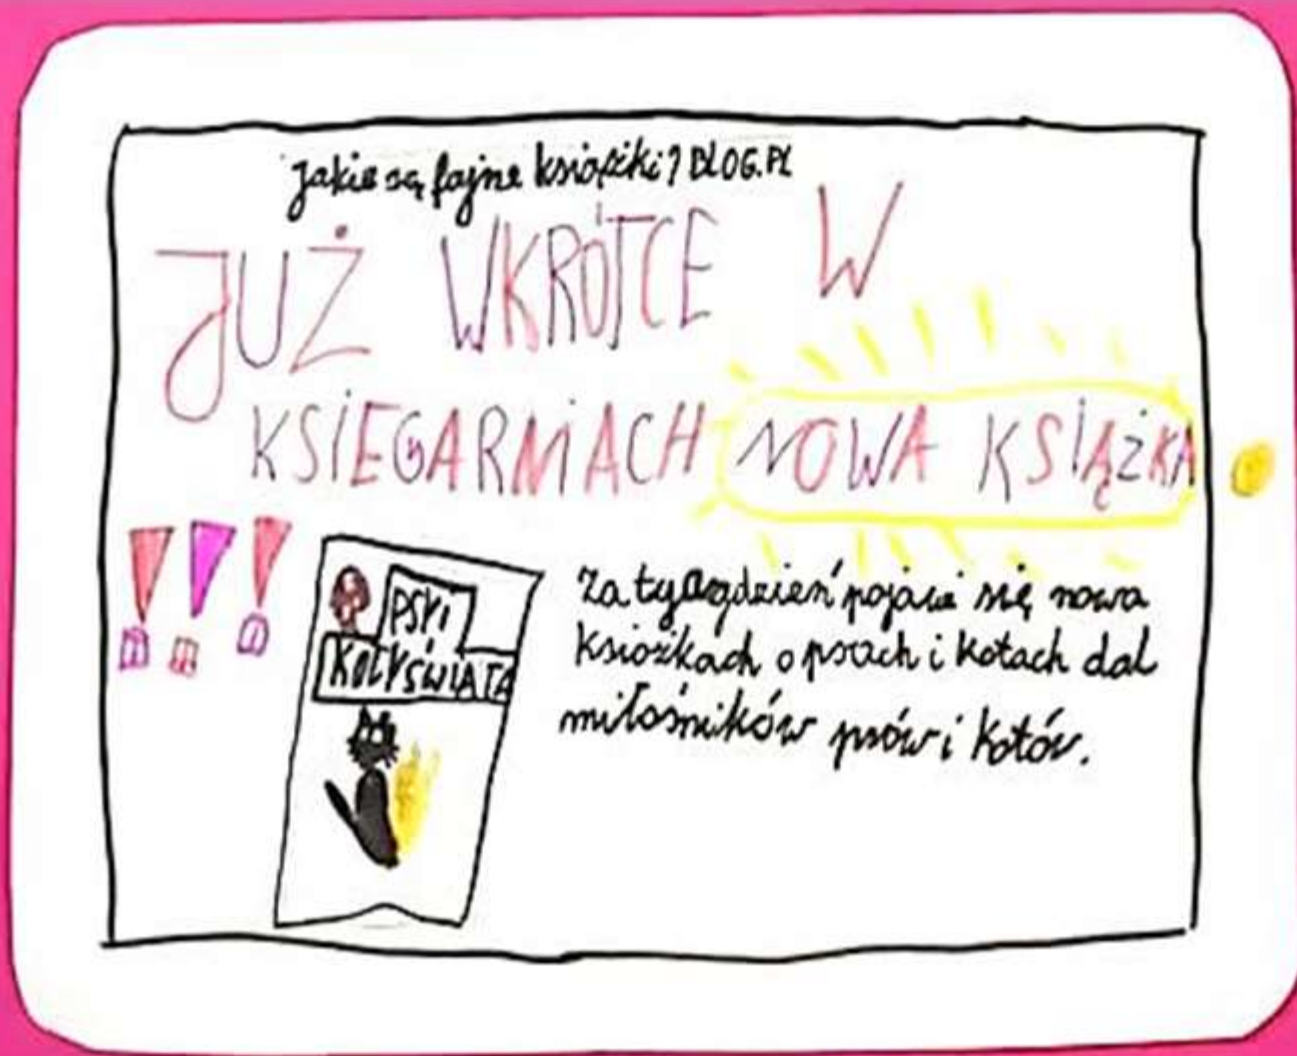 Jakie są fajne książki? BLOG.PL
JUŻ WKRÓTCE W
KSIEGARNIACH NOWA KSIĄŻKA
!!!
PSY I
KOTY ŚWIATA
Za tydzień pojawi się nowa
książkach o psach i kotach dal
miłośników psów i kotów.